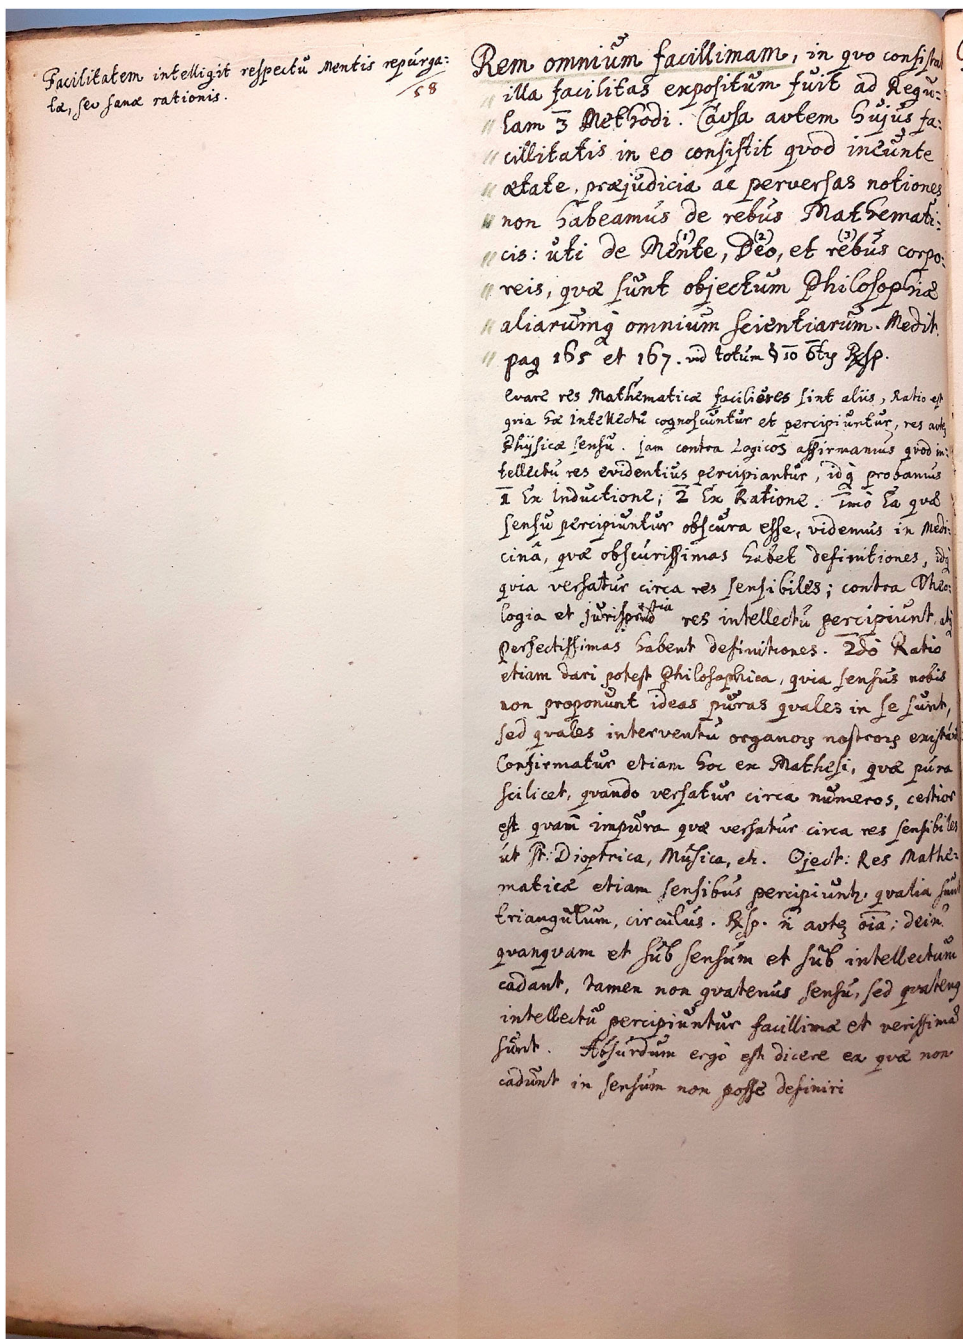 Facilitatem intelligit respectu Mentis repurga:
tæ, seu sanæ rationis.
58
Rem omnium facillimam, in quo consistat
illa facilitas expositum fuit ad Regu:
lam 3 Methodi. Causa autem hujus fa:
cillitatis in eo consistit quod ineunte
ætate, præjudicia ac perversas notiones
non habeamus de rebus Mathemati:
cis: uti de Mente, Deo, et rebus corpo:
(1) (2) (3)
reis, quæ sunt objectum Philosophiæ
aliarumq̀ omnium scientiarum. Medit.
pag 165 et 167. vid totum § 10 6tæ Resp.
Cur res Mathematicæ faciliores sint aliis, Ratio est
quia hæ intellectu cognoscuntur et percipiuntur, res autẽ
Physicæ sensu. Jam contra Logicos affirmamus quod in:
tellectu res evidentius percipiantur, idq̀ probamus
1 Ex Inductione; 2 Ex Ratione. Imò Ea quæ
sensu percipiuntur obscura esse, videmus in Medi:
cinâ, quæ obscurissimas habet definitiones, idq̀
quia versatur circa res sensibiles; contra Theo:
logia et jurisprudentia res intellectu percipiunt, atq̀
perfectissimas habent definitiones. 2dò Ratio
etiam dari potest Philosophica, quia sensus nobis
non proponunt ideas puras quales in se sunt,
sed quales interventu organoꝝ nostroꝝ existunt
Confirmatur etiam hoc ex Mathesi, quæ pura
scilicet, quando versatur circa numeros, certior
est quam impura quæ versatur circa res sensibiles
ut st: Dioptrica, Musica, etc. Oject: Res Mathe:
maticæ etiam sensibus percipiuntꝫ, qualia sunt
triangulum, circulus. Resp. ñ autẽ oĩa; dein
quanquam et sub sensum et sub intellectum
cadant, tamen non quatenus sensu, sed quatenꝰ
intellectu percipiuntur facillimæ et verissimæ
sunt. Absurdum ergò est dicere ea quæ non
cadunt in sensum non posse definiri